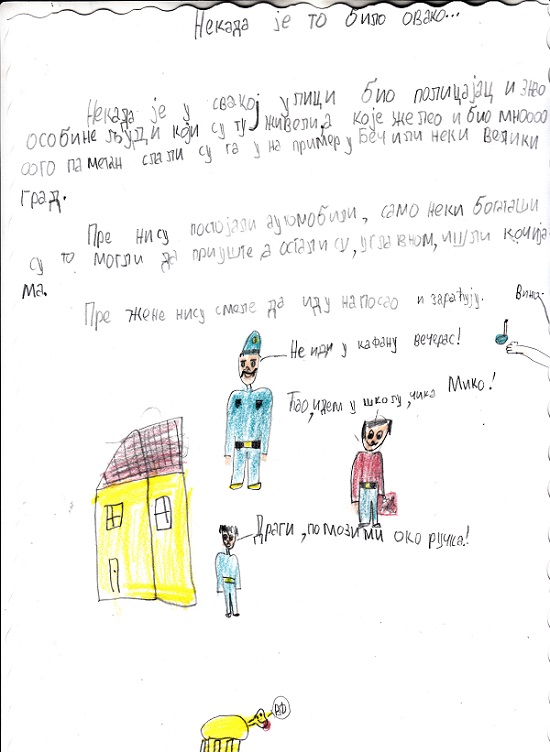 Некада је то било овако...
Некада је у свакој улици био полицајац и знао
особине људи који су ту живели, а које желео и био мноооо
оого паметан слали су га у на пример у Беч или неки велики
град.
Пре нису постојали аутомобили, само неки богаташи
су то могли да приуште а остали су, углавном, ишли кочија
ма.
Пре жене нису смеле да иду на посао и зарађују.
Вино.
Не иди у кафану вечерас!
Ћао, идем у школу, чика Мико!
Драги, помози ми око ручка!